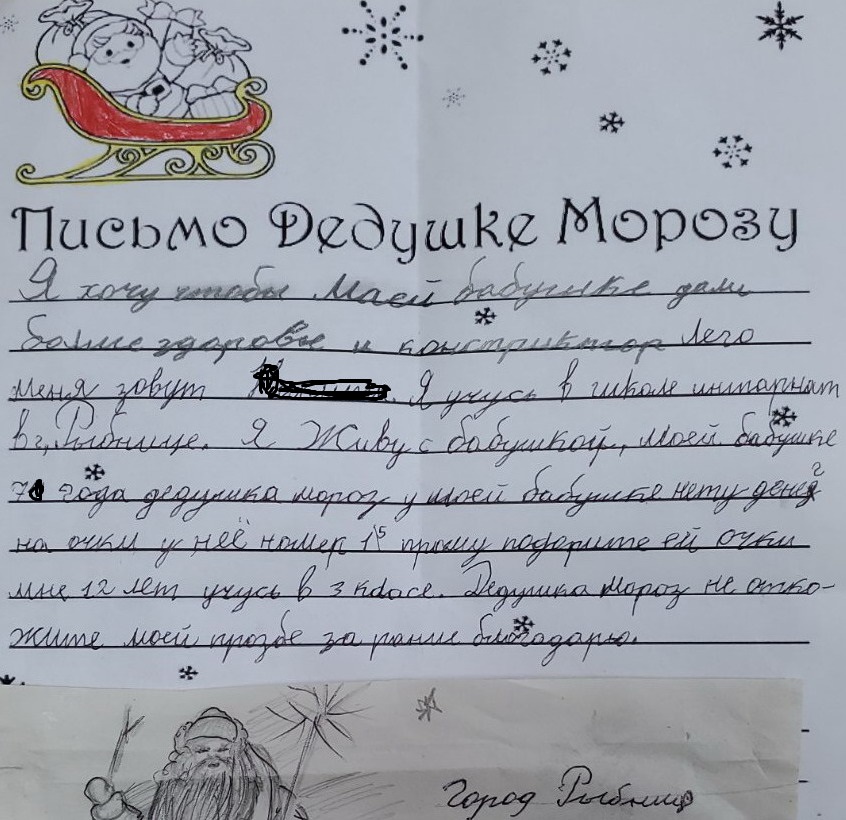 Письмо Дедушке Морозу
Я хочу чтобы Маей бабушке дали
болше здоровье и конструктор Лего
меня зовут . Я учусь в школе интарнат
в г, Рыбнице. Я Живу с бабушкой, Моей бабушке
года дедушка мороз у моей бабушке нету денег
на очки у неё номер 1,5 прошу подарите ей очки
мне 12 лет учусь в 3 класе. Дедушка Мороз не отка-
жите моей прозбе за рание благодарю.
Город Рыбница